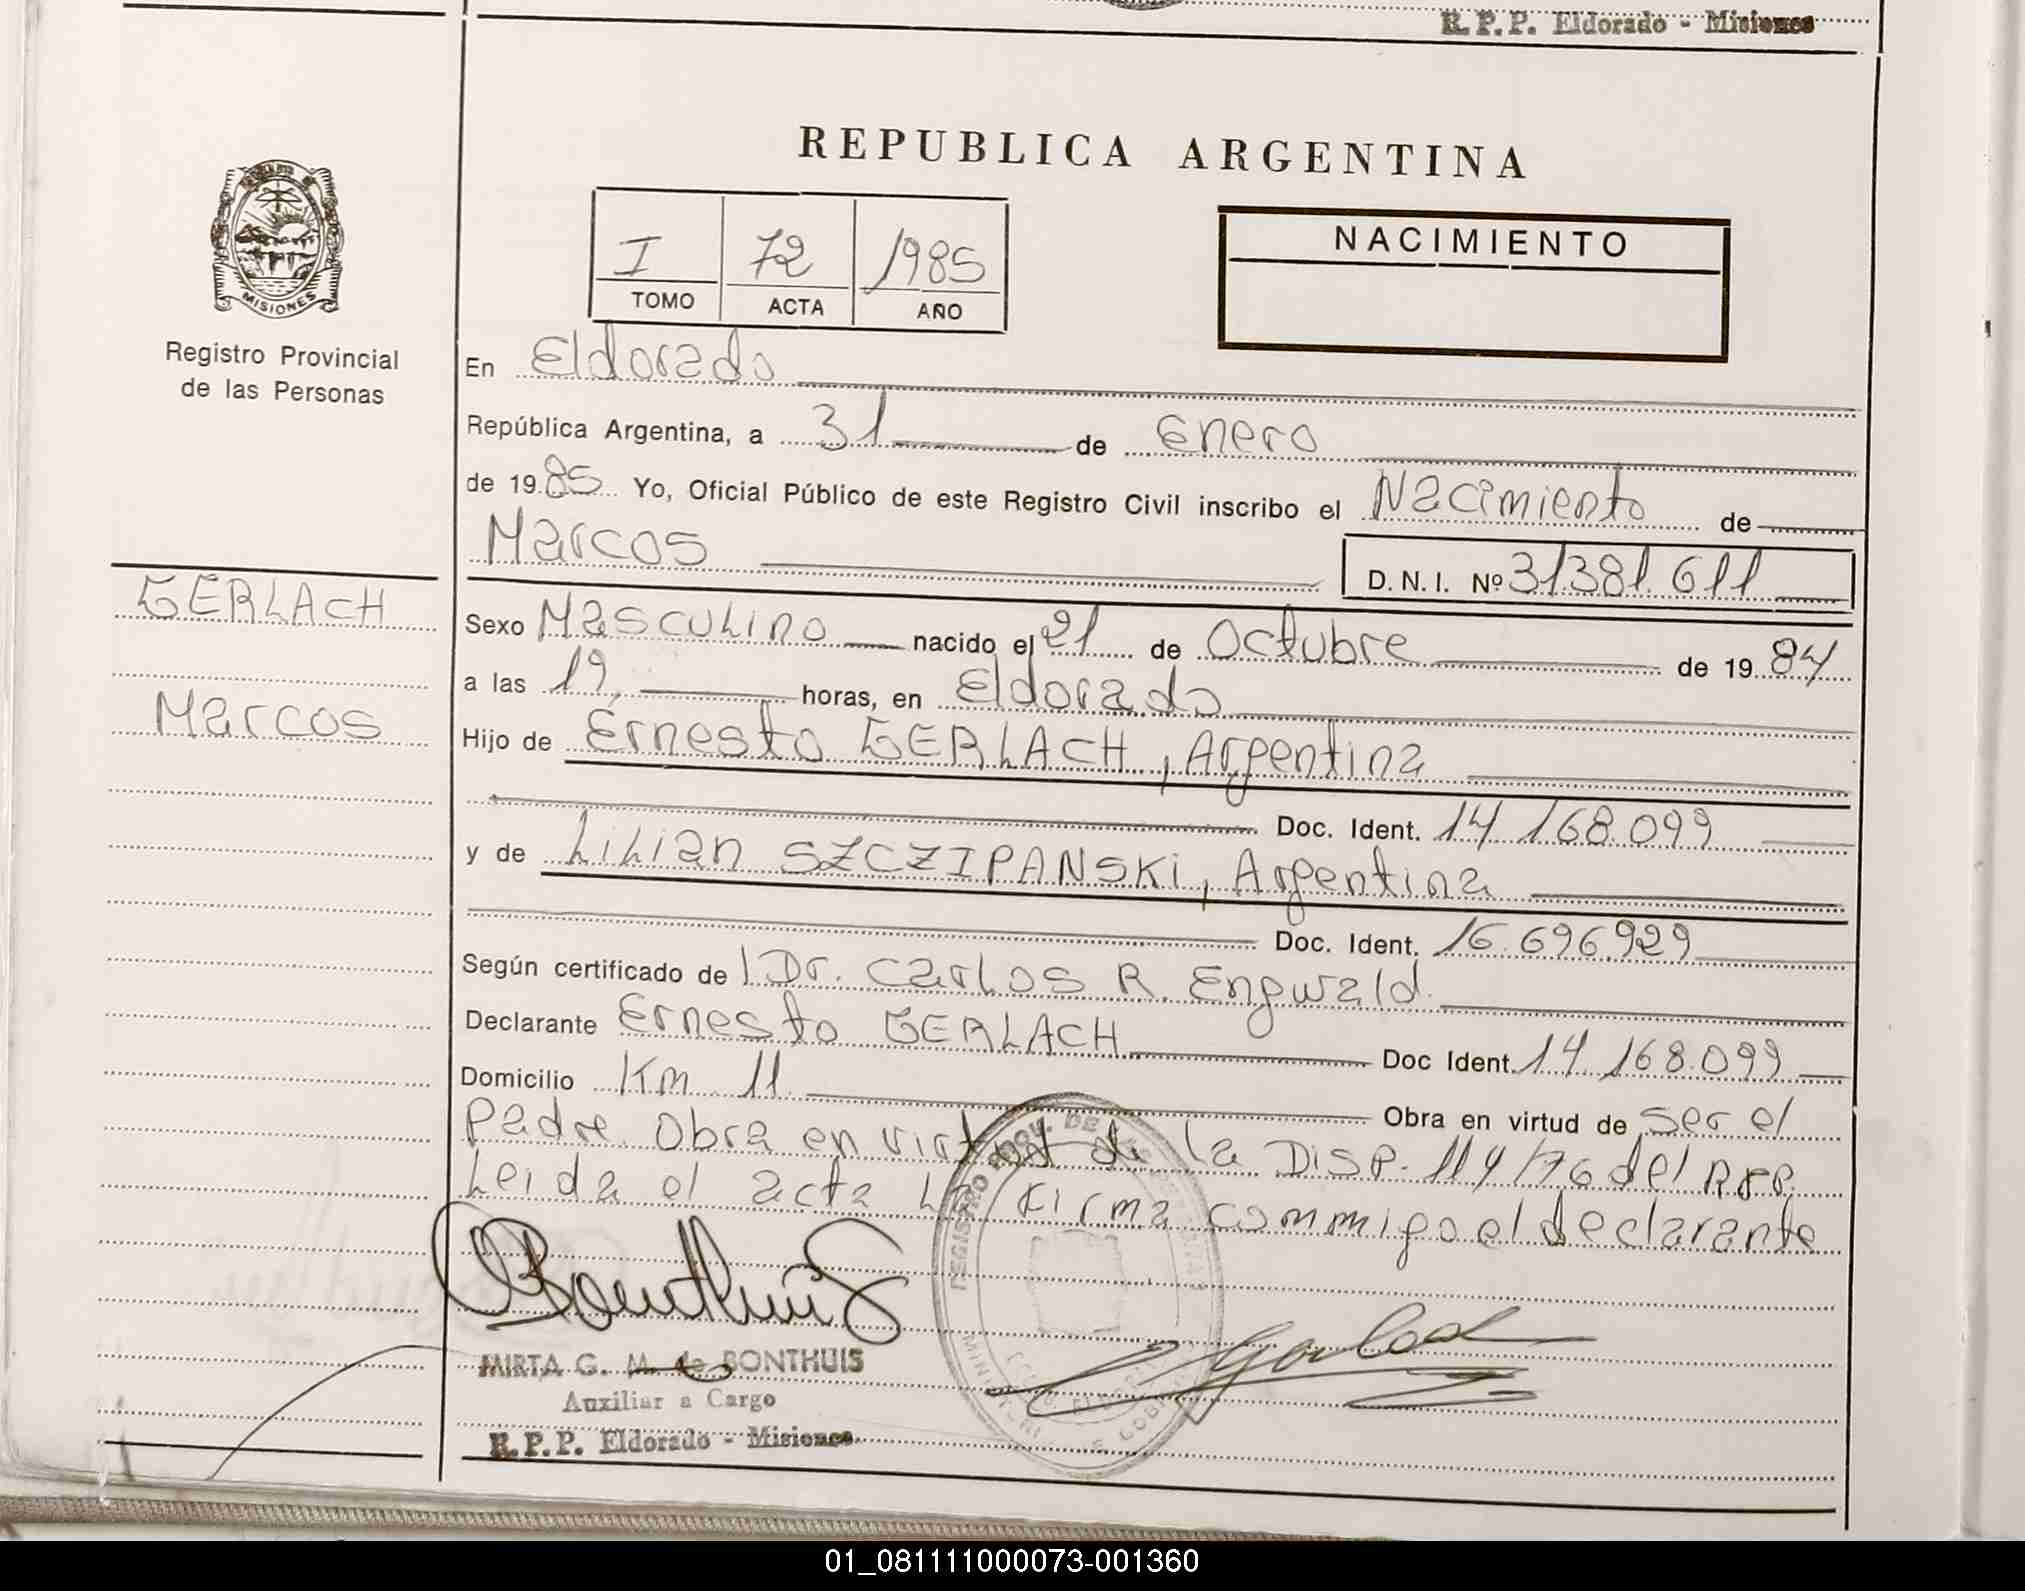 R.P.P. Eldorado - Misiones
REPUBLICA ARGENTINA
I 72 1985
TOMO ACTA AÑO
NACIMIENTO
MISIONES
Registro Provincial
de las Personas
En Eldorado
República Argentina, a 31 de Enero
de 1985 Yo, Oficial Público de este Registro Civil inscribo el Nacimiento de
Marcos
D.N.I. Nº 31381.611
GERLACH
Marcos
Sexo Masculino nacido el 21 de Octubre de 1984
a las 19, horas, en Eldorado
Hijo de Ernesto GERLACH, Argentina
Doc. Ident. 14.168.099
y de Lilian SZCZIPANSKi, Argentina
Doc. Ident. 16.696.929
Según certificado de Dr. Carlos R. Engwald
Declarante Ernesto GERLACH Doc Ident. 14.168.099
Domicilio Km. 11 Obra en virtud de ser el
padre. Obra en virtud de la DISP. 114/76 del RPP.
Leida el acta la firma commigo el declarante
MIRTA G. M. de BONTHUIS
Auxiliar a Cargo
R.P.P. Eldorado - Misiones
01_081111000073-001360